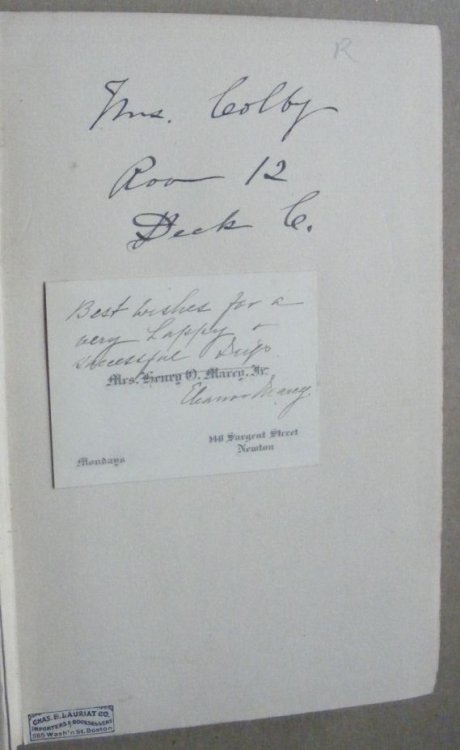 R
Mrs. Colby
Room 12
Deck C.
Best wishes for a
very happy &
successful
Mrs. Henry O. Marcy, Jr.
Eleanor Marcy
140 Sargent Street
Newton
Mondays
CHAS. E. LAURIAT CO.
IMPORTERS & BOOKSELLERS
385 Wash'n St. Boston